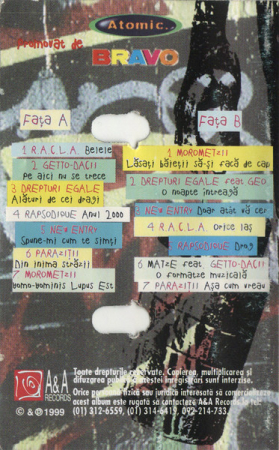 Atomic..
promovat de
BRAVO
Fața A
1 R.A.C.L.A. Belele
2 GETTO-DACII
Pe aici nu se trece
3 DREPTURI EGALE
Alături de cei dragi
4 RAPSODIQUE Anul 2000
5 NEW ENTRY
Spune-mi cum te simți
6 PARAZIȚII
Din inima străzii
7 MOROMEȚII
Homo-hominis Lupus Est
Fața B
1 MOROMEȚII
Lăsați băieții să-și facă de cap
2 DREPTURI EGALE feat GEO
O noapte întreagă
3 NEW ENTRY Doar atât vă cer
4 R.A.C.L.A. Orice laș
RAPSODIQUE Drog
6 MAȚZE feat. GETTO-DACII
O formație muzicală
7 PARAZIȚII Așa cum vreau
A&A
RECORDS
© & ℗ 1999
Toate drepturile rezervate. Copierea, multiplicarea și
difuzarea publică a acestei înregistrări sunt interzise.
Orice persoană fizică sau juridică interesată să comercializeze
acest album este rugată să contacteze A&A Records la tel.:
(01) 312-6559, (01) 314-6419, 092-214-733.